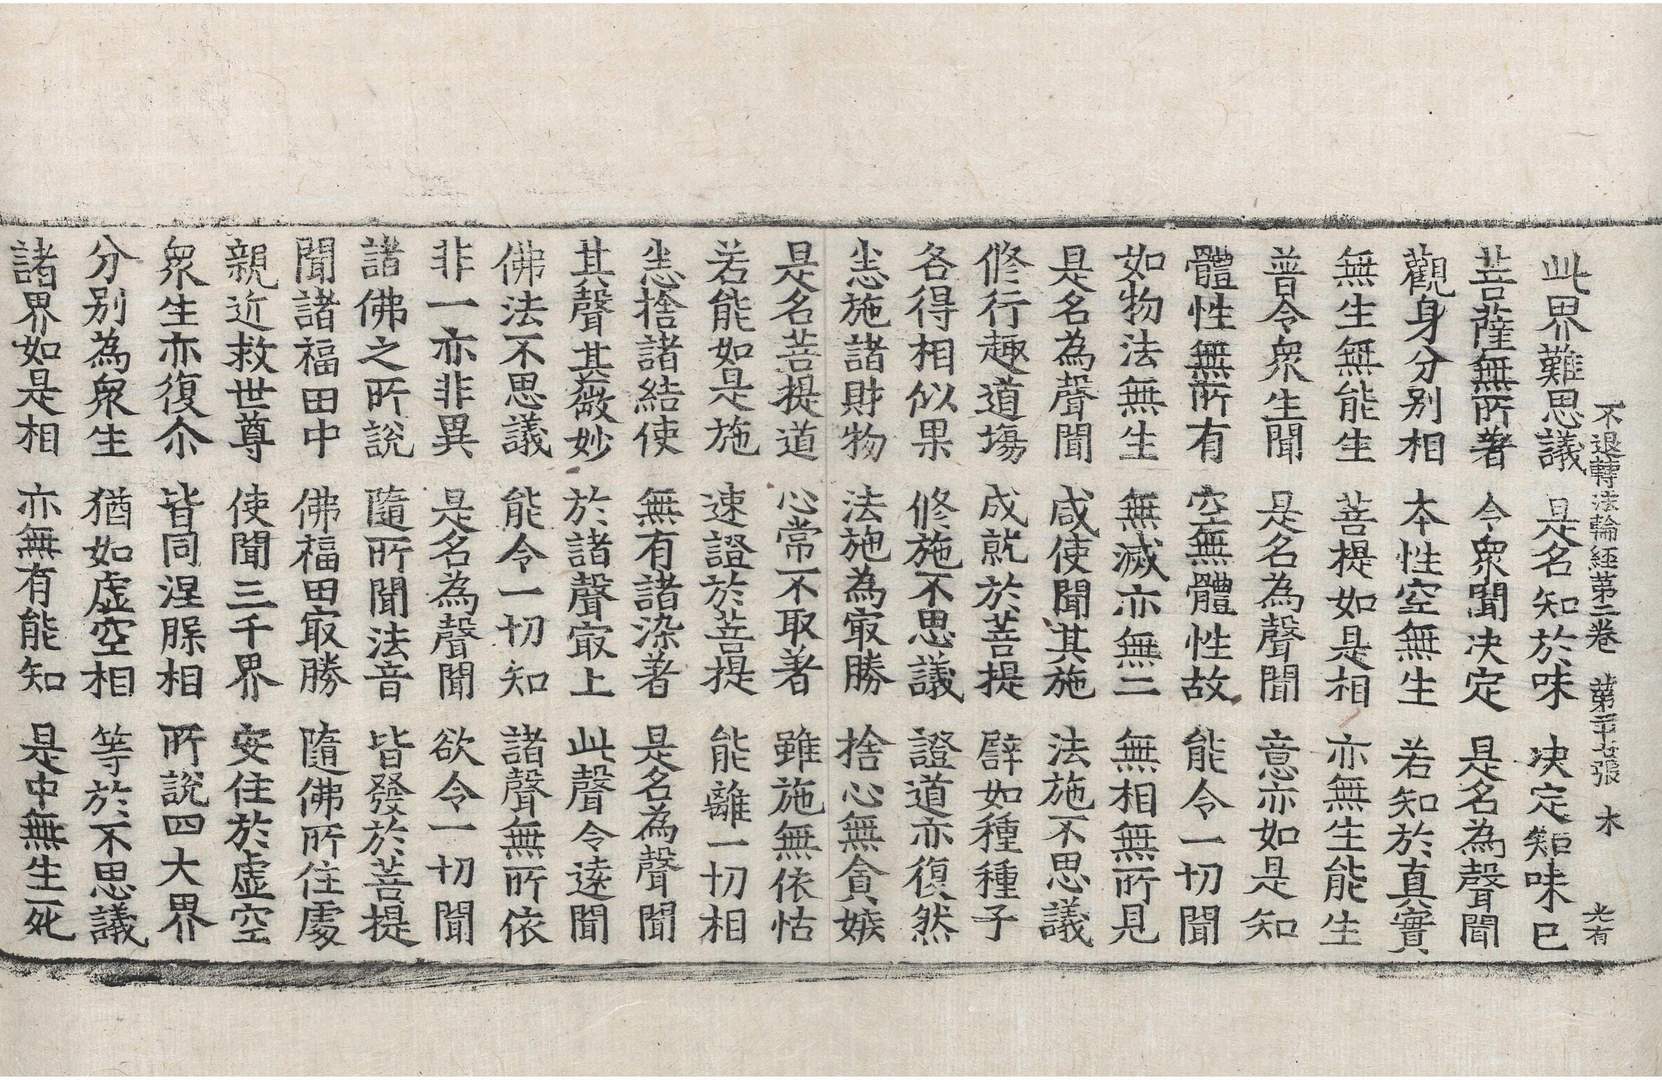 不退轉法輪経第二卷 第二十七張 木 光有
此界難思議 是名知於味 决定知味已
菩薩無所著 令衆聞决定 是名為聲聞
觀身分別相 本性空無生 若知於真實
無生無能生 菩提如是相 亦無生能生
普令衆生聞 是名為聲聞 意亦如是知
體性無所有 空無體性故 能令一切聞
如物法無生 無滅亦無二 無相無所見
是名為聲聞 咸使聞其施 法施不思議
修行趣道塲 成就於菩提 譬如種種子
各得相似果 修施不思議 證道亦復然
㤀施諸財物 法施為㝡勝 捨心無貪嫉
是名菩提道 心常不取著 雖施無依怙
若能如是施 速證於菩提 能離一切相
㤀捨諸結使 無有諸染著 是名為聲聞
其聲甚微妙 於諸聲㝡上 此聲令逺聞
佛法不思議 能令一切知 諸聲無所依
非一亦非異 是名為聲聞 欲令一切聞
諸佛之所説 隨所聞法音 皆發於菩提
聞諸福田中 佛福田㝡勝 隨佛所住處
親近救世尊 使聞三千界 安住於虚空
衆生亦復尒 皆同涅槃相 所説四大界
分別為衆生 猶如虚空相 等於不思議
諸界如是相 亦無有能知 是中無生死